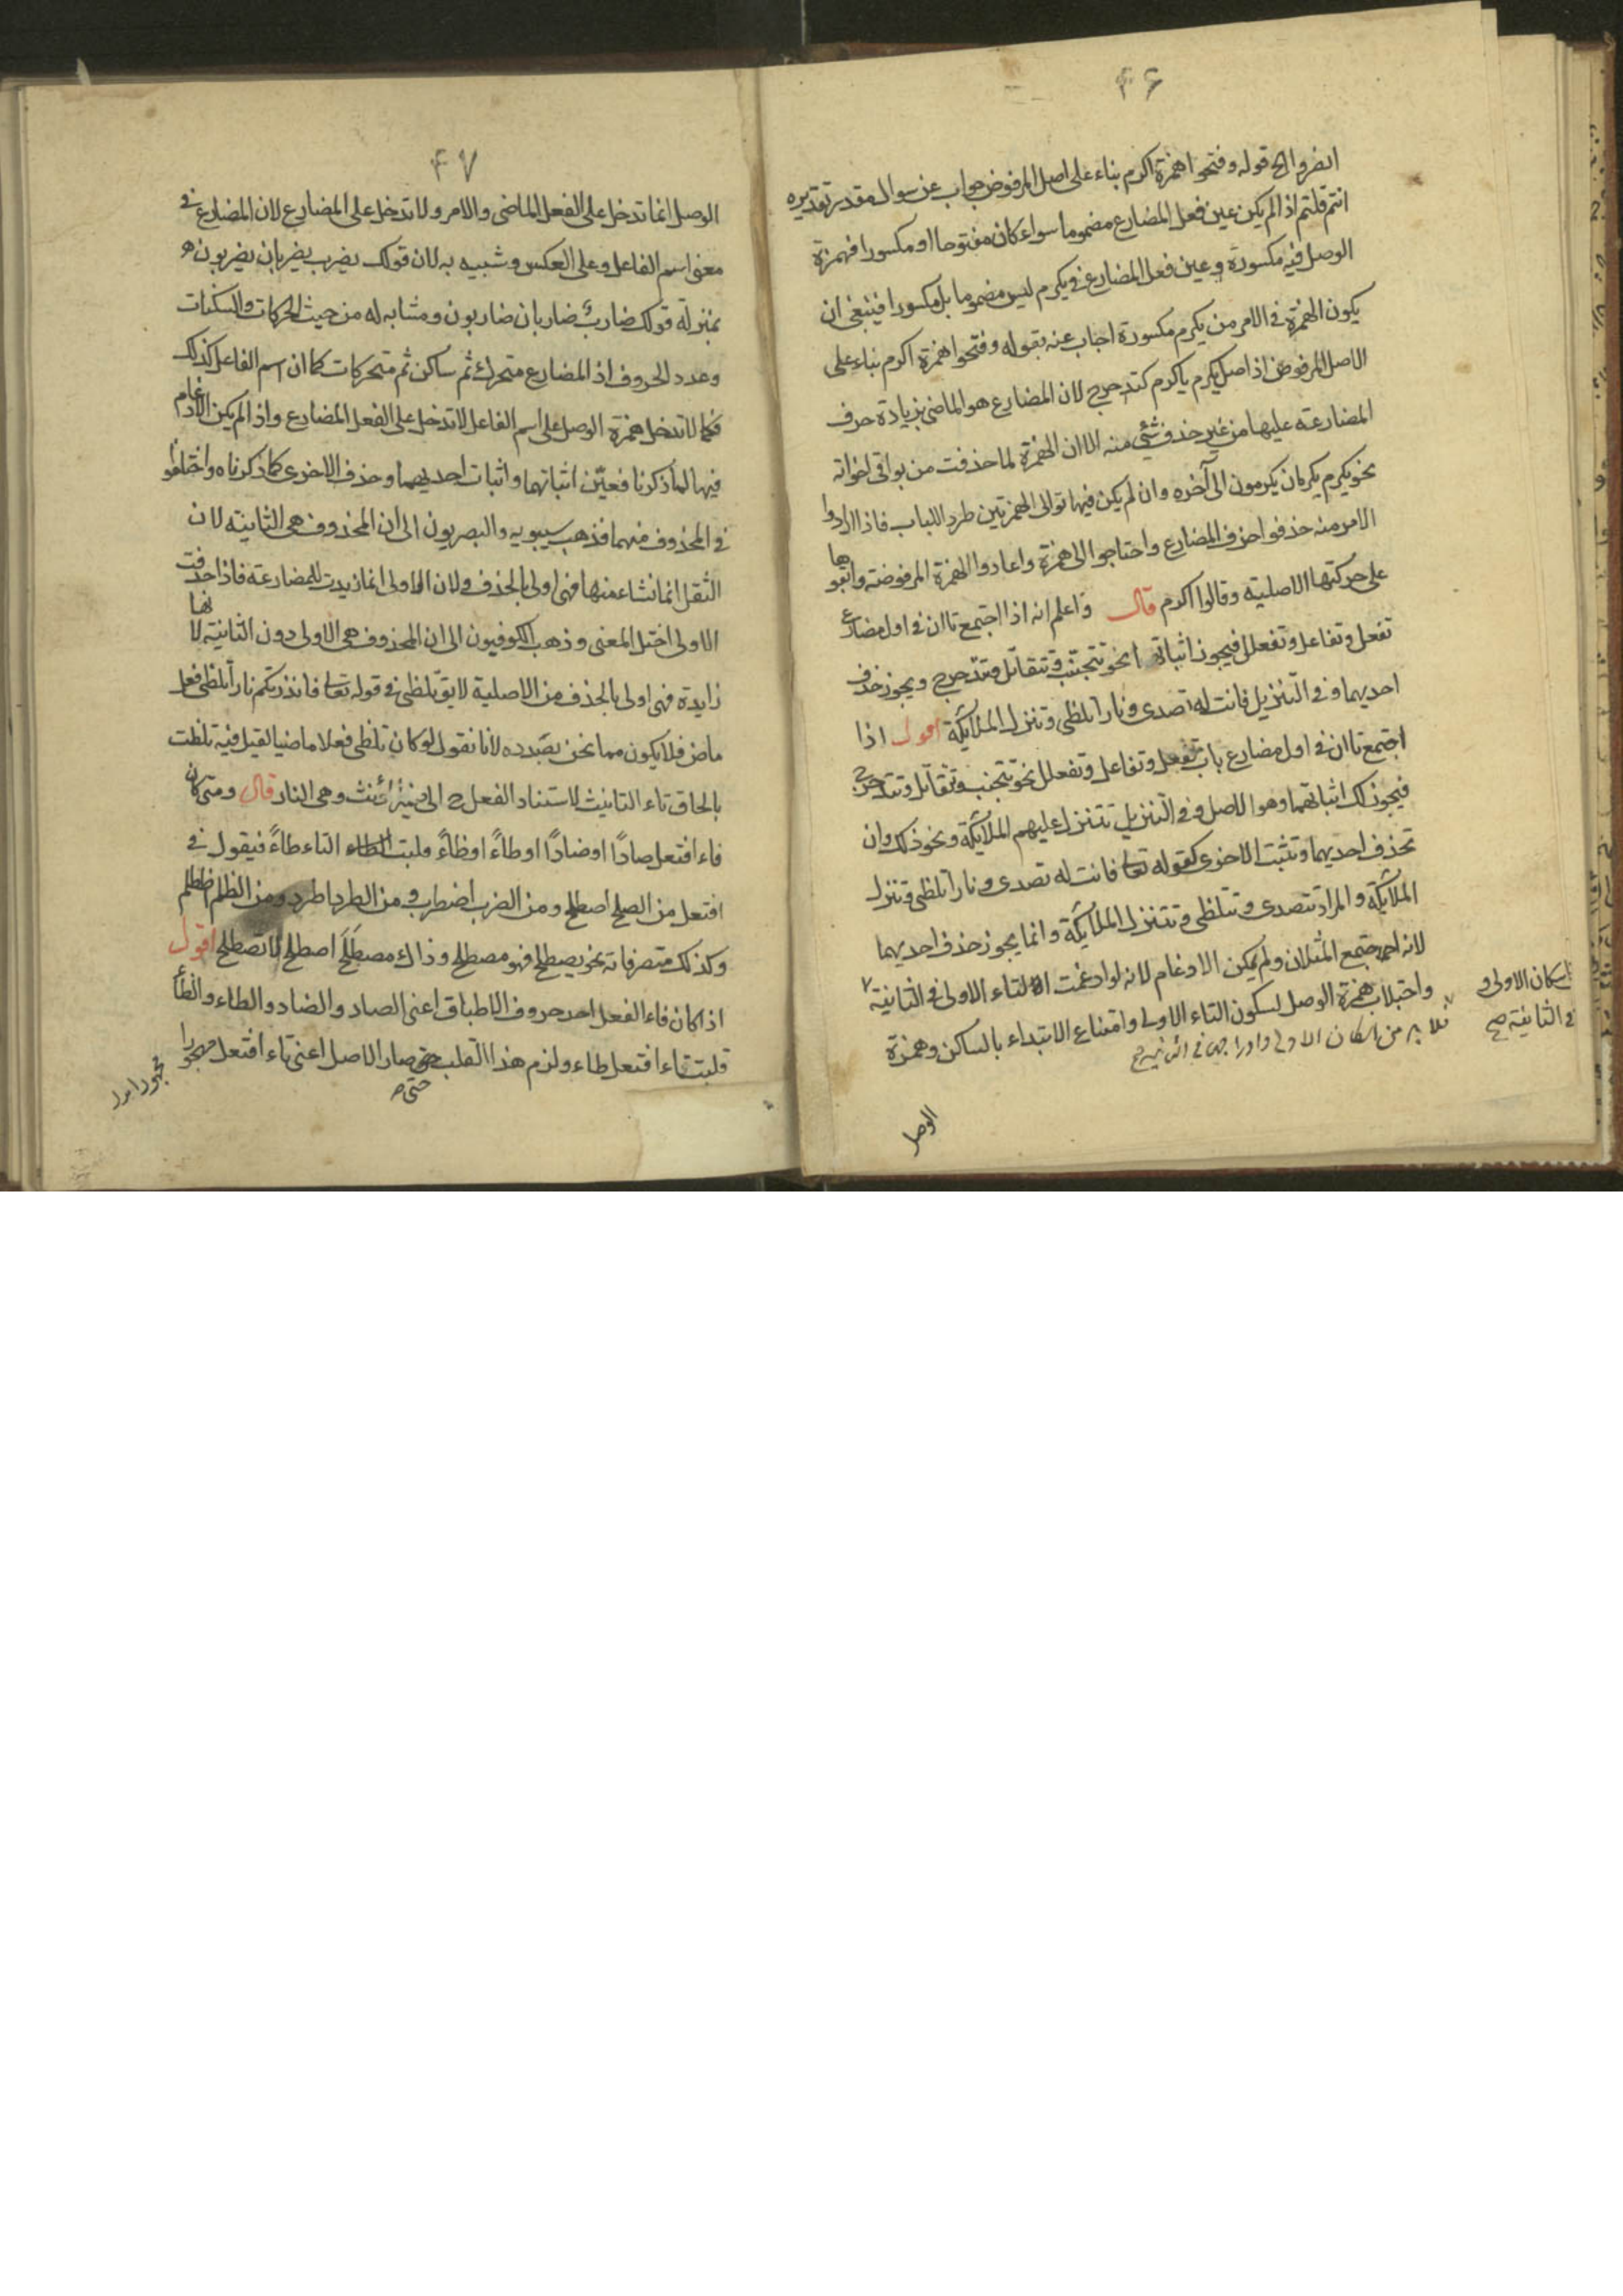 ۴۶
انصروا الخ قوله وفتحوا همزة اكرم بناء على اصل المرفوض جواب عن سوال مقدر تقديره
انتم قلتم اذا لم يكن عين فعل المضارع مضموما سواء كان مفتوحا او مكسورا فهمزة
الوصل فيه مكسورة وعين فعل المضارع في يكرم ليس مضموما بل مكسورا فينبغى ان
يكون الهمزة في الامر من يكرم مكسورة اجاب عنه بقوله وفتحوا همزة اكرم بناء على
الاصل المرفوض اذ اصل يكرم ياكرم كتدحرج لان المضارع هو الماضى بزيادة حرف
المضارعة عليها من غير حذف شئي منه الا ان الهمزة لما حذفت من بواقى اخواته
نحو يكرم يكرمان يكرمون الى آخره وان لم يكن فيها توالى الهمزتين طرد اللباب فاذا ارادوا
الامر منه حذفوا حرف المضارع واحتاجوا الى همزة واعادوا الهمزة المرفوضة وابقوها
على حركتها الاصلية وقالوا اكرم قال واعلم انه اذا اجتمع تاان في اول مضارع
تفعل وتفاعل وتفعلل فيجوز اثباتهما نحو تتجنب وتتقاتل وتتدحرج ويجوز حذف
احديهما وفى التنزيل فانت له تصدى ونارا تلظى وتنزل الملائكة اقول اذا
اجتمع تاان في اول مضارع باب تفعل وتفاعل وتفعلل نحو تتجنب وتتقاتل وتتدحرج
فيجوز لك اثباتهما وهو الاصل وفى التنزيل تتنزل عليهم الملائكة ونحو ذلك وان
تحذف احديهما وتثبت الاخرى كقوله تعا فانت له تصدى ونارا تلظى وتنزل
الملائكة والمراد تتصدى وتتلظى وتتنزل الملائكة وانما يجوز حذف احديهما
لانه اجتمع المثلان ولم يمكن الادغام لانه لو ادغمت التاء الاولى في الثانية
واجتلاب همزة الوصل لسكون التاء الاولى وامتناع الابتداء بالساكن وهمزة
فلا بد من اسكان الاولى وادراجها في الثانية صح
اسكان الاولى و
في الثانية صح
الوصل
۴۷
الوصل انما تدخل على الفعل الماضى والامر ولا تدخل على المضارع لان المضارع في
معنى اسم الفاعل وعلى العكس وشبيه به لان قولك يضرب يضربان يضربون هو
بمنزلة قولك ضارب ضاربان ضاربون ومشابه له من حيث الحركات والسكنات
وعدد الحروف اذ المضارع متحرك ثم ساكن ثم متحركات كما ان اسم الفاعل كذلك
فكما لا تدخل همزة الوصل على اسم الفاعل لا تدخل على الفعل المضارع واذا لم يكن الادغام
فيها لما ذكرنا فعيّن اثباتهما واثبات احديهما وحذف الاخرى كما ذكرناه واختلفوا
في المحذوف منهما فذهب سيبويه والبصريون الى ان المحذوف هى الثانية لان
الثقل انما نشاء منها فهى اولى بالحذف ولان الاولى انما زيدت للمضارعة فاذا حذفت
الاولى اختل المعنى وذهب الكوفيون الى ان المحذوف هى الاولى دون الثانية لانها
زايدة فهى اولى بالحذف من الاصلية لايق تلظى في قوله تعا فانذرتكم نارا تلظى فعل
ماض فلا يكون مما نحن بصدده لانا نقول لو كان تلظى فعلا ماضيا لقيل فيه تلظت
بالحاق تاء التانيث لاستناد الفعل ح الى ضمير مؤنث وهى النار قال ومتى كان
فاء افتعل صادًا او ضادًا او طاءً او ظاءً قلبت التاء طاءً فيقول في
افتعل من الصلح اصطلح ومن الضرب اضطرب ومن الطرد اطرد ومن الظلم اظطلم
وكذلك متصرفاته نحو يصطلح فهو مصطلح وذاك مصطلَح اصطلح لا تصطلح اقول
اذا كان فاء الفعل احد حروف الاطباق اعنى الصاد والضاد والطاء والظاء
قلبت تاء افتعل طاء ولزم هذا القلب حتى صار الاصل اعنى تاء افتعل مهجورا
حتى ص